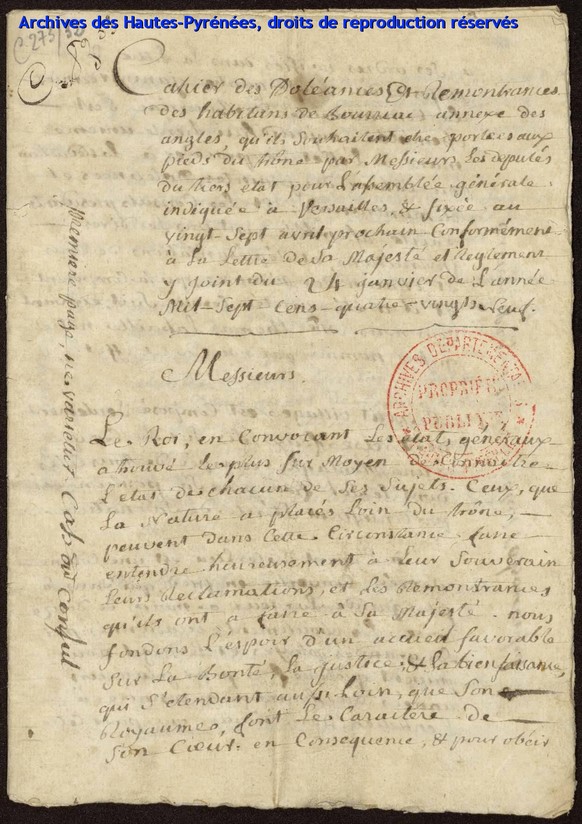 Archives des Hautes-Pyrénées, droits de reproduction réservés
C 275/32
Cahier des Doléances Et Remontrances
des habitans de Bourreac annexe des
angles, qu'ils souhaitent etre portées aux
pieds du trône par Messieurs Les deputés
du tiers état pour L'assemblée générale
indiquée à Versailles, & fixée au
vingt-sept avril prochain Conformément
à La Lettre de Sa Majesté et Reglement
y joint du 24 janvier de L'année
Mil-Sept-Cens-quatre-vingts neuf.
Messieurs.
Le Roi, en Convocant Les états généraux
a trouvé le plus sur Moyen de Connoitre
L'état de chacun de Ses Sujets. Ceux, que
La Nature a placés Loin du trône,
peuvent dans Cette Circonstance faire
entendre heureusement à Leur Souverain
Leurs Reclamations, et Les Remontrances
qu'ils ont à faire à Sa Majesté. nous
fondons L'espoir d'un accueil favorable
Sur La Bonté, La justice, & La bienfaisance,
qui S'etendant aussi Loin, que Son
Royaume, font Le Caractere de
Son Cœur. en Consequence, & pour obeir
Premiere page, ne varietur. Consul
ARCHIVES DEPARTEMENTALES
PROPRIÉTÉ
PUBLIQUE